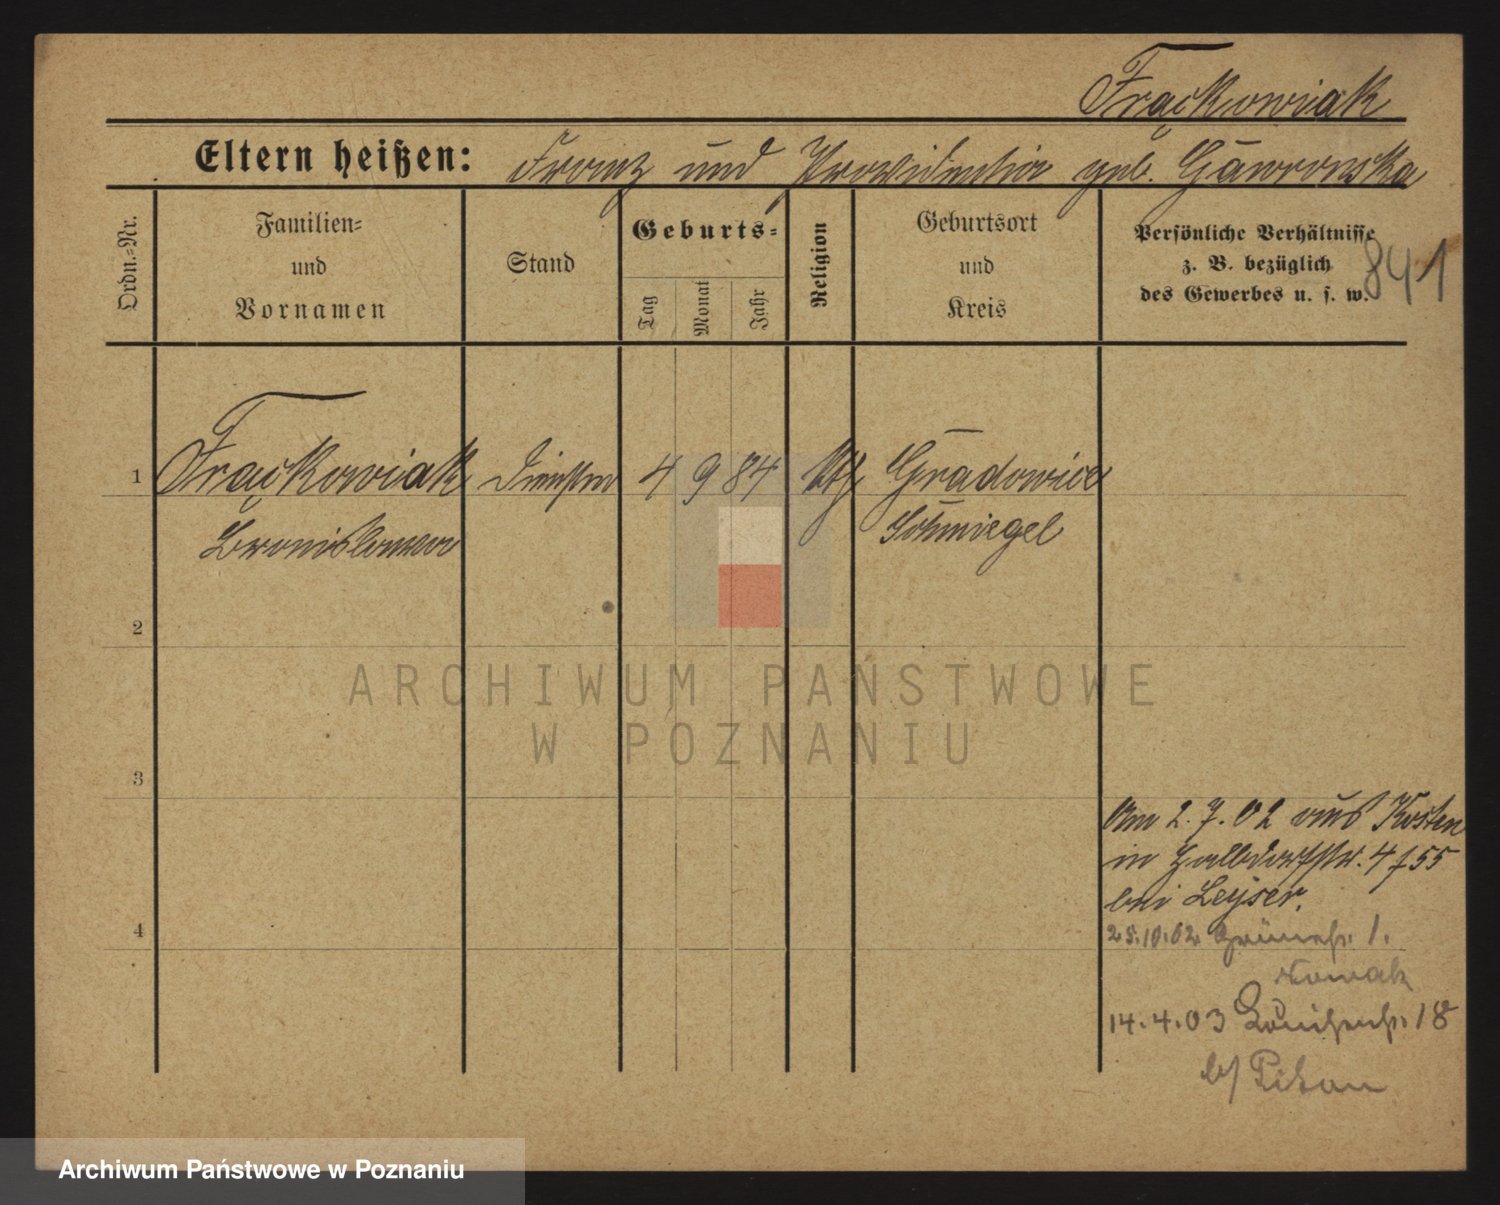 Frąckowiak
Eltern heißen: Franz und Prowidentia geb. Gawronska
Ordn.-Nr.
Familien-
und
Vornamen
Stand
Geburts-
Tag
Monat
Jahr
Religion
Geburtsort
und
Kreis
Persönliche Verhältnisse
z. B. bezüglich
des Gewerbes u. s. w.
841
1 Frąckowiak 4 9 84 kth Gradowice
Bronislawa Schmiegel
2
3
Am 2.7.02 aus Kosten
in Halbdorfstr. 4 f 55
bei Leyser.
4
25.10.02 Grünestr. 1.
Nowak
14.4.03 Louisenstr. 18
b/
ARCHIWUM PAŃSTWOWE
W POZNANIU
Archiwum Państwowe w Poznaniu